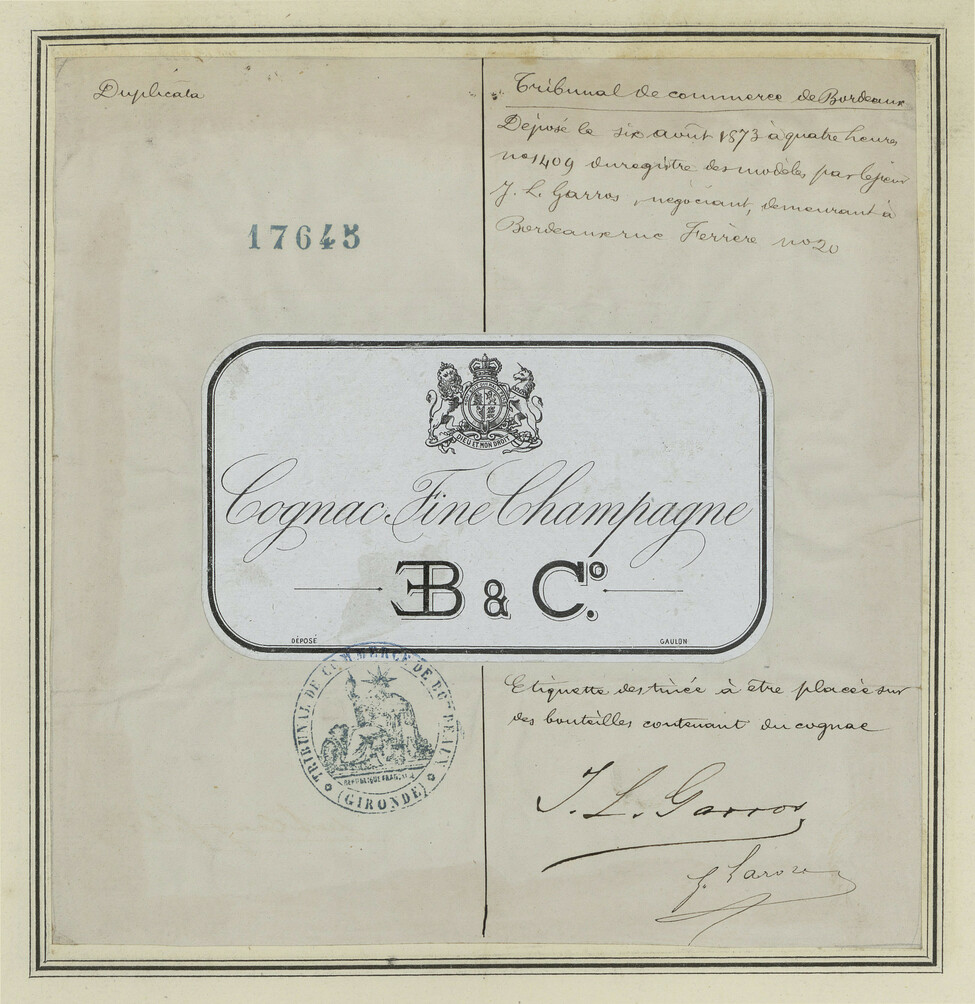 Duplicata
17645
Tribunal de commerce de Bordeaux
Déposé le six août 1873 à quatre heures
no 1409 du registre des modèles par le sieur
J. L. Garros, négociant, demeurant à
Bordeaux rue Ferrère no 20
DIEU ET MON DROIT
Cognac Fine Champagne
EB & Co.
DÉPOSÉ
GAULON
TRIBUNAL DE COMMERCE DE BORDEAUX
RÉPUBLIQUE FRANÇAISE
(GIRONDE)
Etiquette destinée à être placée sur
des bouteilles contenant du cognac
J. L. Garros